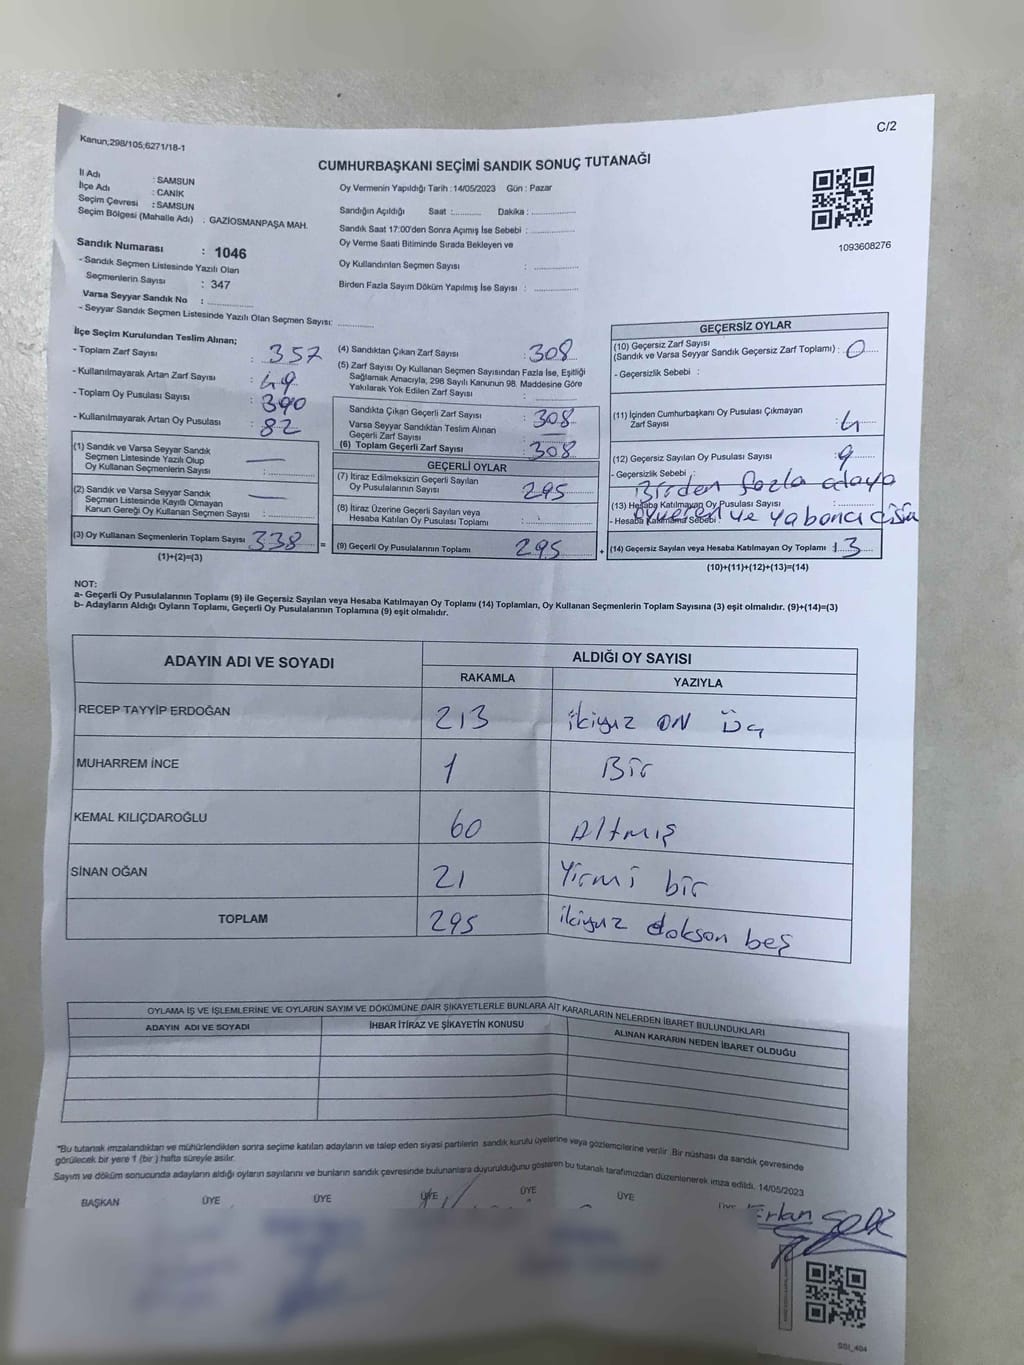 Kanun;298/105;6271/18-1
C/2
CUMHURBAŞKANI SEÇİMİ SANDIK SONUÇ TUTANAĞI
İl Adı : SAMSUN
İlçe Adı : CANİK
Seçim Çevresi : SAMSUN
Seçim Bölgesi (Mahalle Adı) : GAZİOSMANPAŞA MAH.
Sandık Numarası : 1046
- Sandık Seçmen Listesinde Yazılı Olan
Seçmenlerin Sayısı : 347
Varsa Seyyar Sandık No : ..............
- Seyyar Sandık Seçmen Listesinde Yazılı Olan Seçmen Sayısı: ............
Oy Vermenin Yapıldığı Tarih : 14/05/2023 Gün : Pazar
Sandığın Açıldığı Saat :.......... Dakika : ..............
Sandık Saat 17:00'den Sonra Açımış İse Sebebi : ..............
Oy Verme Saati Bitiminde Sırada Bekleyen ve
Oy Kullandırılan Seçmen Sayısı : ..............
Birden Fazla Sayım Döküm Yapılmış İse Sayısı : ..............
1093608276
İlçe Seçim Kurulundan Teslim Alınan;
- Toplam Zarf Sayısı : 357
- Kullanılmayarak Artan Zarf Sayısı : 49
- Toplam Oy Pusulası Sayısı : 390
- Kullanılmayarak Artan Oy Pusulası : 82
(1) Sandık ve Varsa Seyyar Sandık
Seçmen Listesinde Yazılı Olup
Oy Kullanan Seçmenlerin Sayısı : —
(2) Sandık ve Varsa Seyyar Sandık
Seçmen Listesinde Kayıtlı Olmayan
Kanun Gereği Oy Kullanan Seçmen Sayısı : —
(3) Oy Kullanan Seçmenlerin Toplam Sayısı 338 =
(1)+(2)=(3)
(4) Sandıktan Çıkan Zarf Sayısı : 308
(5) Zarf Sayısı Oy Kullanan Seçmen Sayısından Fazla İse, Eşitliği
Sağlamak Amacıyla, 298 Sayılı Kanunun 98. Maddesine Göre
Yakılarak Yok Edilen Zarf Sayısı : ..............
Sandıkta Çıkan Geçerli Zarf Sayısı : 308
Varsa Seyyar Sandıktan Teslim Alınan
Geçerli Zarf Sayısı : —
(6) Toplam Geçerli Zarf Sayısı : 308
GEÇERLİ OYLAR
(7) İtiraz Edilmeksizin Geçerli Sayılan
Oy Pusulalarının Sayısı : 295
(8) İtiraz Üzerine Geçerli Sayılan veya
Hesaba Katılan Oy Pusulası Toplamı : ..............
(9) Geçerli Oy Pusulalarının Toplamı 295 +
GEÇERSİZ OYLAR
(10) Geçersiz Zarf Sayısı
(Sandık ve Varsa Seyyar Sandık Geçersiz Zarf Toplamı) : 0
- Geçersizlik Sebebi :
(11) İçinden Cumhurbaşkanı Oy Pusulası Çıkmayan
Zarf Sayısı : 4
(12) Geçersiz Sayılan Oy Pusulası Sayısı : 9
- Geçersizlik Sebebi :
Birden fazla adaya
(13) Hesaba Katılmayan Oy Pusulası Sayısı :
- Hesaba Katılmama Sebebi :
ve yabancı
(14) Geçersiz Sayılan veya Hesaba Katılmayan Oy Toplamı 13
(10)+(11)+(12)+(13)=(14)
NOT:
a- Geçerli Oy Pusulalarının Toplamı (9) ile Geçersiz Sayılan veya Hesaba Katılmayan Oy Toplamı (14) Toplamları, Oy Kullanan Seçmenlerin Toplam Sayısına (3) eşit olmalıdır. (9)+(14)=(3)
b- Adayların Aldığı Oyların Toplamı, Geçerli Oy Pusulalarının Toplamına (9) eşit olmalıdır.
ADAYIN ADI VE SOYADI
ALDIĞI OY SAYISI
RAKAMLA YAZIYLA
RECEP TAYYİP ERDOĞAN 213 ikiyüz on üç
MUHARREM İNCE 1 Bir
KEMAL KILIÇDAROĞLU 60 Altmış
SİNAN OĞAN 21 Yirmi bir
TOPLAM 295 ikiyüz doksan beş
OYLAMA İŞ VE İŞLEMLERİNE VE OYLARIN SAYIM VE DÖKÜMÜNE DAİR ŞİKAYETLERLE BUNLARA AİT KARARLARIN NELERDEN İBARET BULUNDUKLARI
ADAYIN ADI VE SOYADI İHBAR İTİRAZ VE ŞİKAYETİN KONUSU ALINAN KARARIN NEDEN İBARET OLDUĞU
*Bu tutanak imzalandıktan ve mühürlendikten sonra seçime katılan adayların ve talep eden siyasi partilerin sandık kurulu üyelerine veya gözlemcilerine verilir. Bir nüshası da sandık çevresinde
görülecek bir yere 1 (bir ) hafta süreyle asılır.
Sayım ve döküm sonucunda adayların aldığı oyların sayılarını ve bunların sandık çevresinde bulunanlara duyurulduğunu gösteren bu tutanak tarafımızdan düzenlenerek imza edildi. 14/05/2023
BAŞKAN ÜYE ÜYE ÜYE ÜYE ÜYE
Erkan
SSI_404